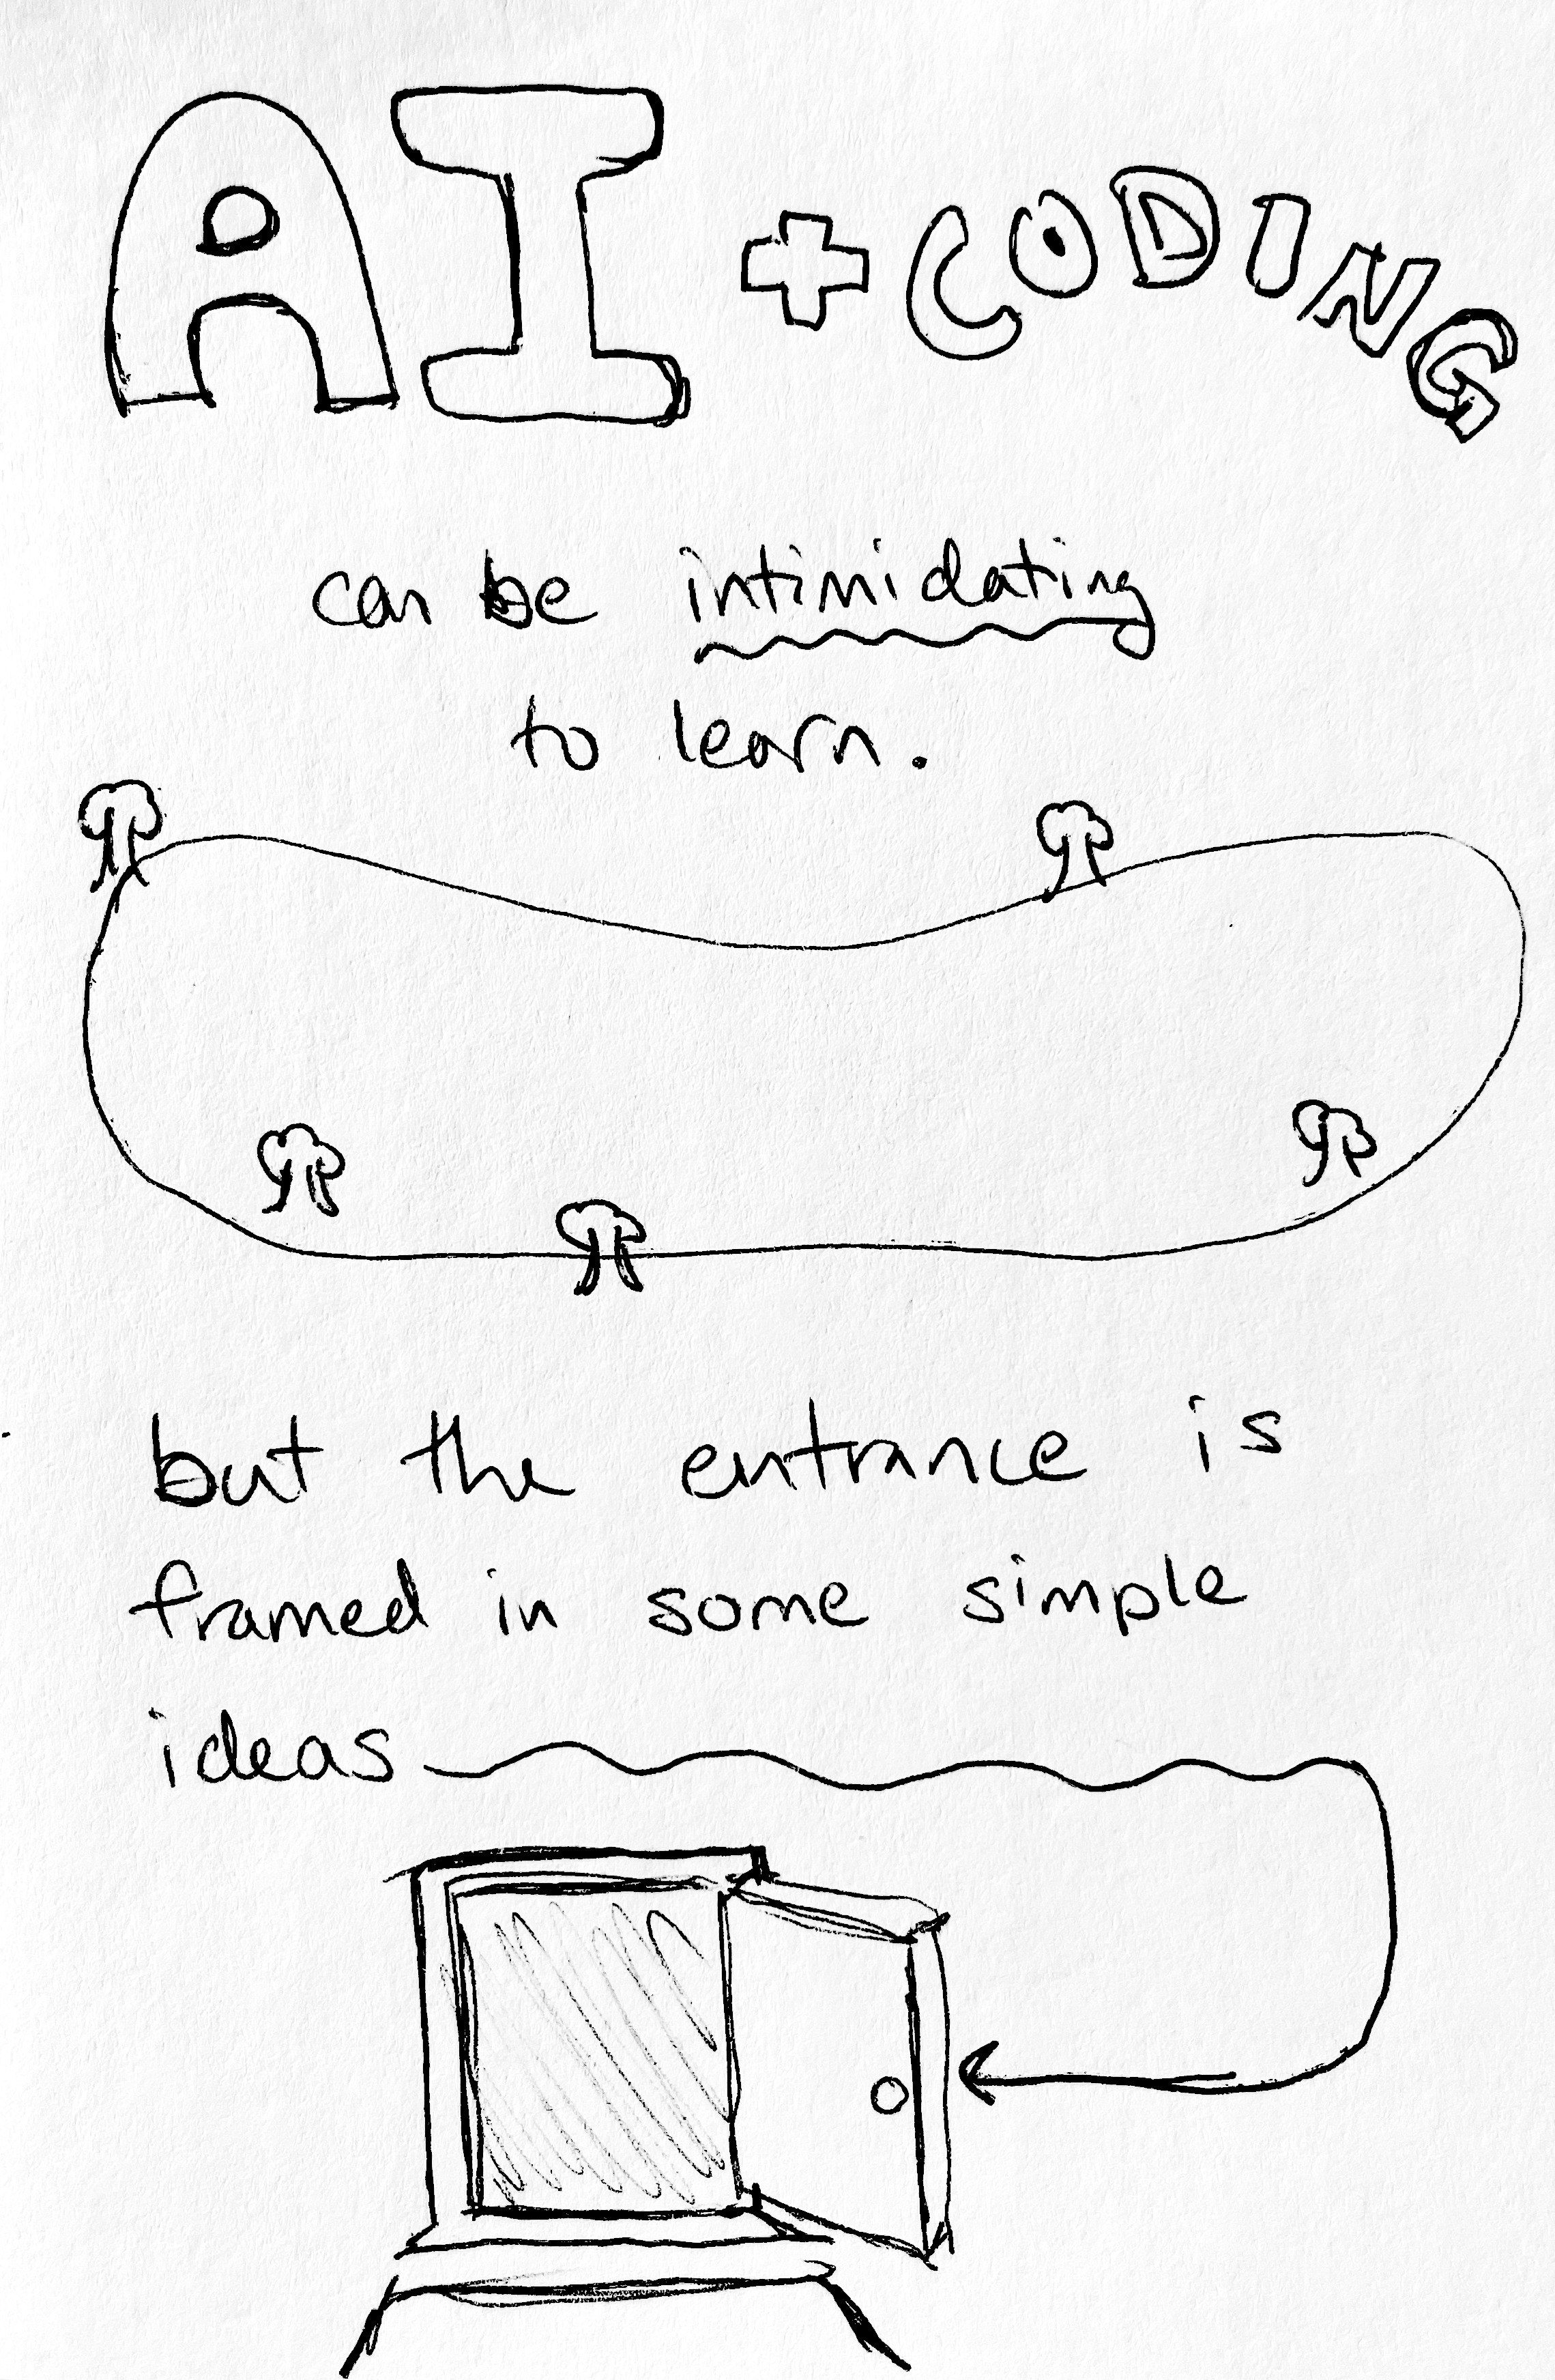 AI + CODING
can be intimidating
to learn.
but the entrance is
framed in some simple
ideas